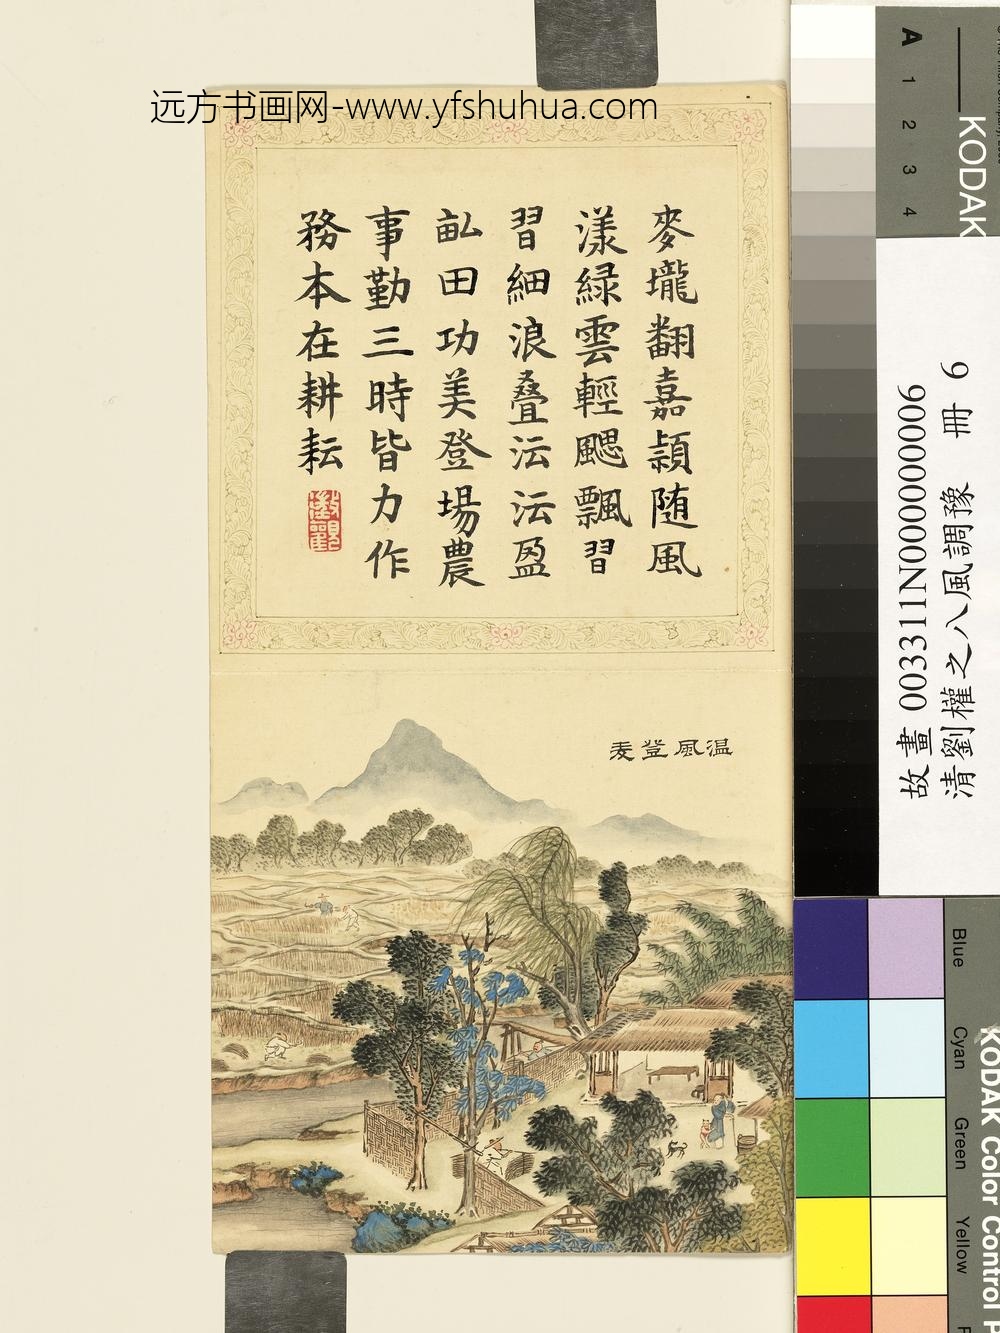 远方书画网-www.yfshuhua.com
麥壠翻嘉頴随風
漾緑雲輕颸飄習
習細浪叠沄沄盈
畝田功美登場農
事勤三時皆力作
務本在耕耘
温風登麦
A 1 2 3 4
KODAK
故畫 003311N000000006
清劉權之八風調豫 冊 6
Blue
Cyan
Green
Yellow
KODAK Color Control